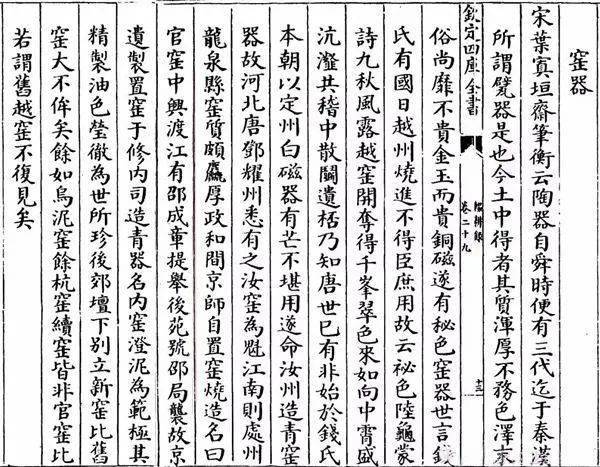 窰器
宋葉寘垣齋筆衡云陶器自舜時便有三代迄于秦漢
所謂甓器是也今土中得者其質渾厚不務色澤本
欽定四庫全書
輟耕錄
卷二十九
十三
俗尚靡不貴金玉而貴銅磁遂有秘色窰器世言錢
氏有國日越州燒進不得臣庶用故云祕色陸龜蒙
詩九秋風露越窰開奪得千峯翠色來如向中宵盛
沆瀣共稽中散鬭遺桮乃知唐世巳有非始於錢氏
本朝以定州白磁器有芒不堪用遂命汝州造青窰
器故河北唐鄧耀州悉有之汝窰為魁江南則處州
龍泉縣窰質頗麤厚政和間京師自置窰燒造名曰
官窰中興渡江有邵成章提舉後苑號邵局襲故京
遺製置窰于修内司造青器名内窰澄泥為範極其
精製油色瑩徹為世所珍後郊壇下别立新窰比舊
窰大不侔矣餘如烏泥窰餘杭窰續窰皆非官窰比
若謂舊越窰不復見矣